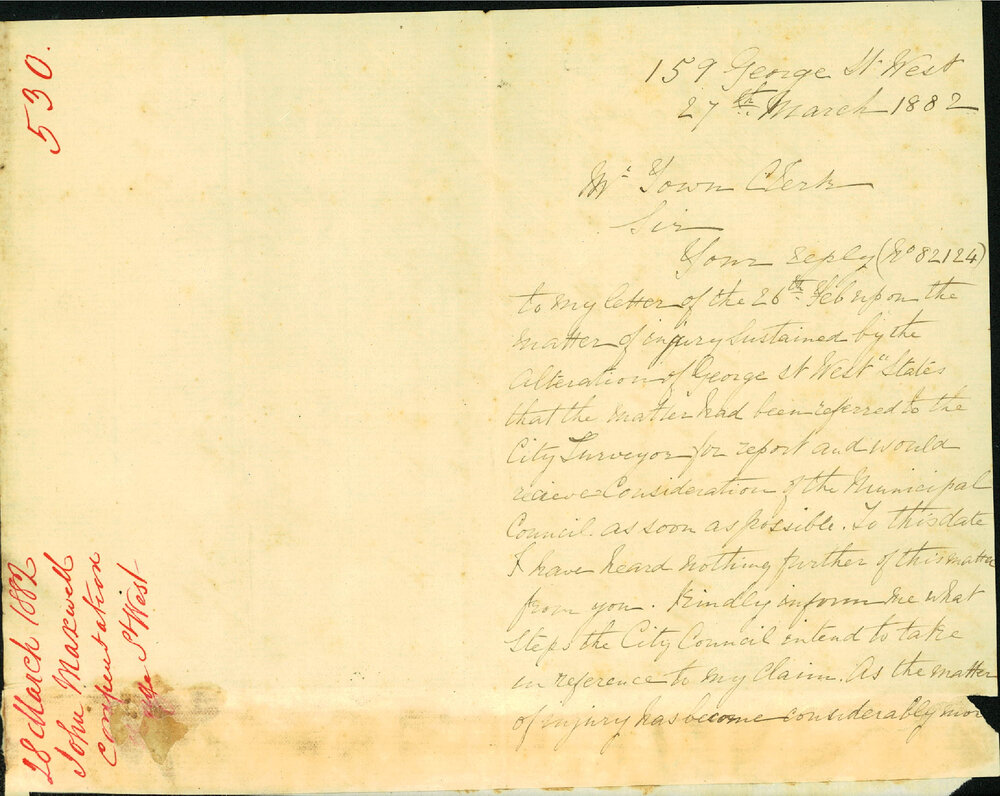 530.
28 March 1882
John Maxwell
Compensation
St West
159 George St West
27th March 1882
Mr Town Clerk
Sir
Your reply (No 82124)
to my letter of the 26th Feb upon the
matter of injury sustained by the
alteration of George st West "States
that the matter had been referred to the
City Surveyor for report and would
recieve Consideration of the Municipal
Council. as soon as possible. To this date
I have heard nothing further of this matter
from you. Kindly inform me what
Steps the City Council intend to take
in reference to my Claim. As the matter
of injury has become considerably mor